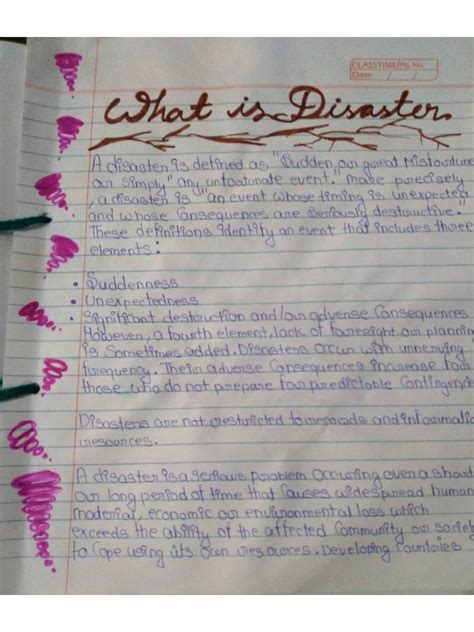 CLASSTIME/Pg. No.
Date / /
What is Disaster
A disaster is defined as "Sudden or great Misfortune
or simply" any unfortunate event." more precisely
, a disaster is "an event whose timing is unexpected
and whose Consequences are seriously destructive."
These definitions identify an event that includes three
elements:
• Suddenness
• Unexpectedness
• Significant destruction and/or adverse Consequences
However, a fourth element, lack of foresight or planning
is Sometimes added. Disasters occur with unnerving
frequency. Their adverse Consequences increase for
those who do not prepare for predictable Contingenc
Disasters are not restricted to records and informatio
resources.
A disaster is a serious problem occuring over a short
or long period of time that Causes widespread human
material, economic or environmental loss which
exceeds the ability of the affected Community or society
to Cope using its own resources. Developing Countries